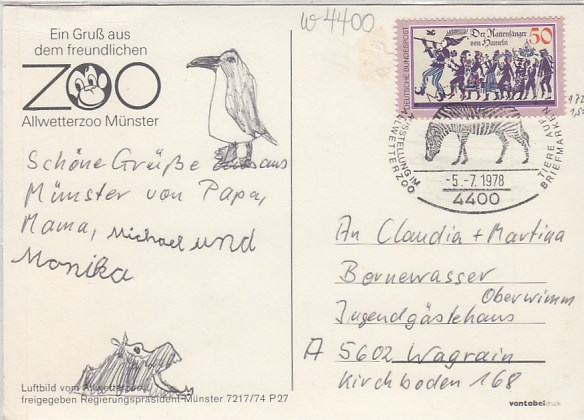 W 4400
Ein Gruß aus
dem freundlichen
ZOO
Allwetterzoo Münster
Schöne Grüße aus
Münster von Papa,
Mama, Michael und
Monika
Luftbild vom Allwetterzoo
freigegeben Regierungspräsident Münster 7217/74 P27
DEUTSCHE BUNDESPOST
Der Rattenfänger
von Hameln
50
AUSSTELLUNG IM
ALLWETTERZOO
TIERE AUF
BRIEFMARKEN
-5.-7.1978
4400
An Claudia + Martina
Bornewasser
Oberwimm
Jugendgästehaus
A 5602 Wagrain
Kirchboden 168
vontobeldruck